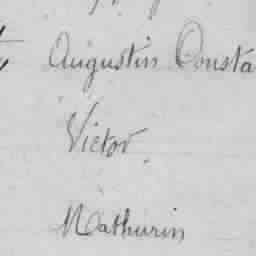 Augustin Consta
Victor
Mathurin